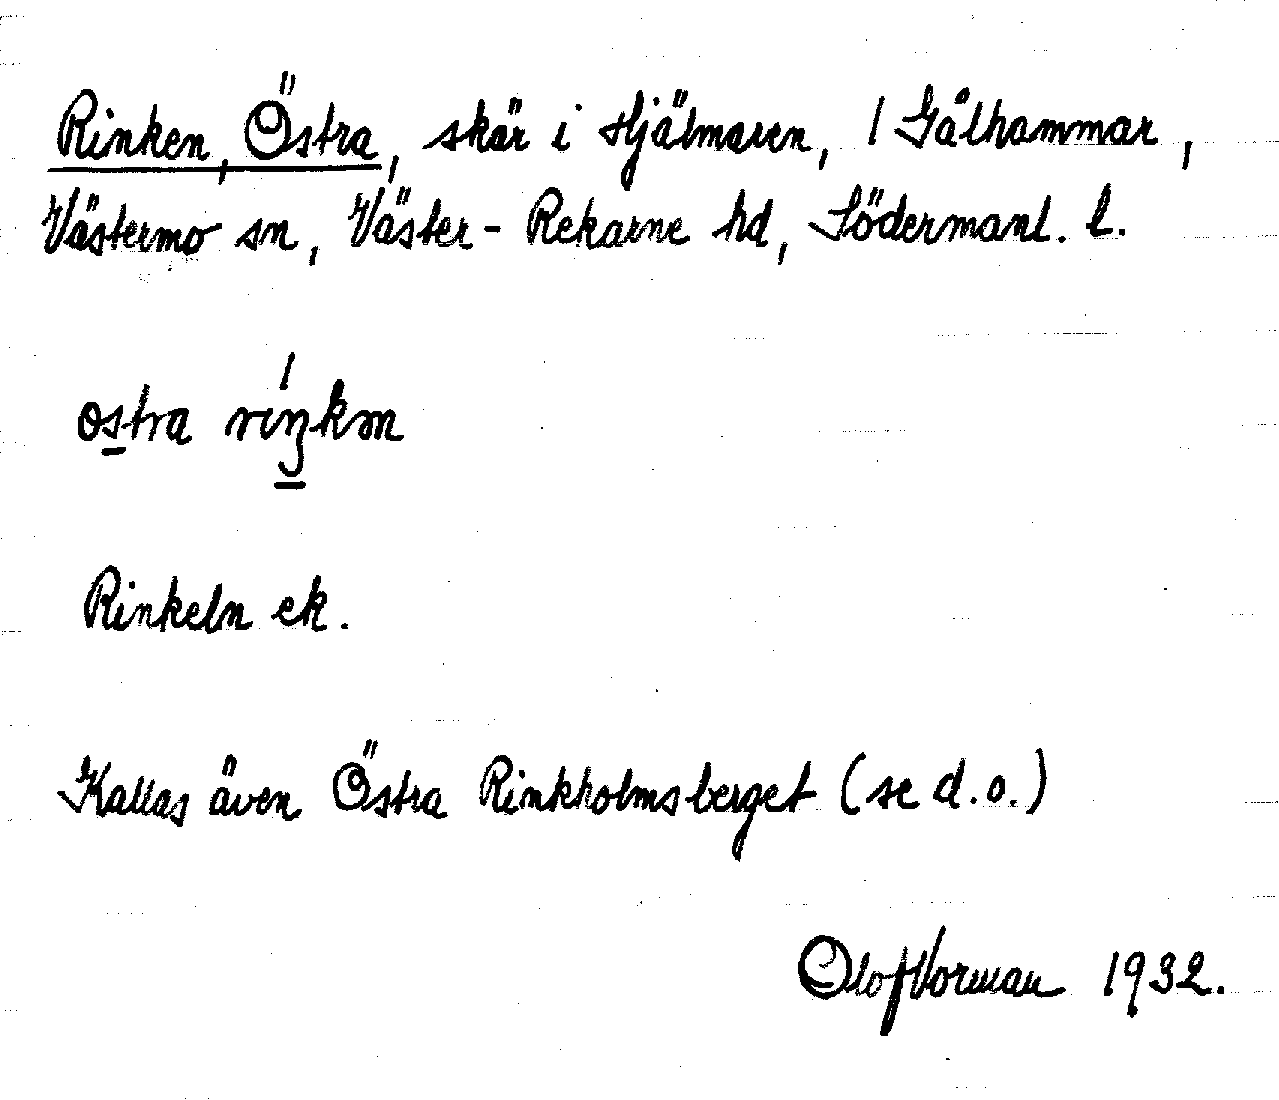 Rinken, Östra, skär i Hjälmaren, / Gålhammar,
Västermo sn, Väster-Rekarne hd, Södermanl. l.
ostra riŋkm
Rinkeln ek.
Kallas även Östra Rinkholmsberget (se d.o.)
Olof Vorman 1932.